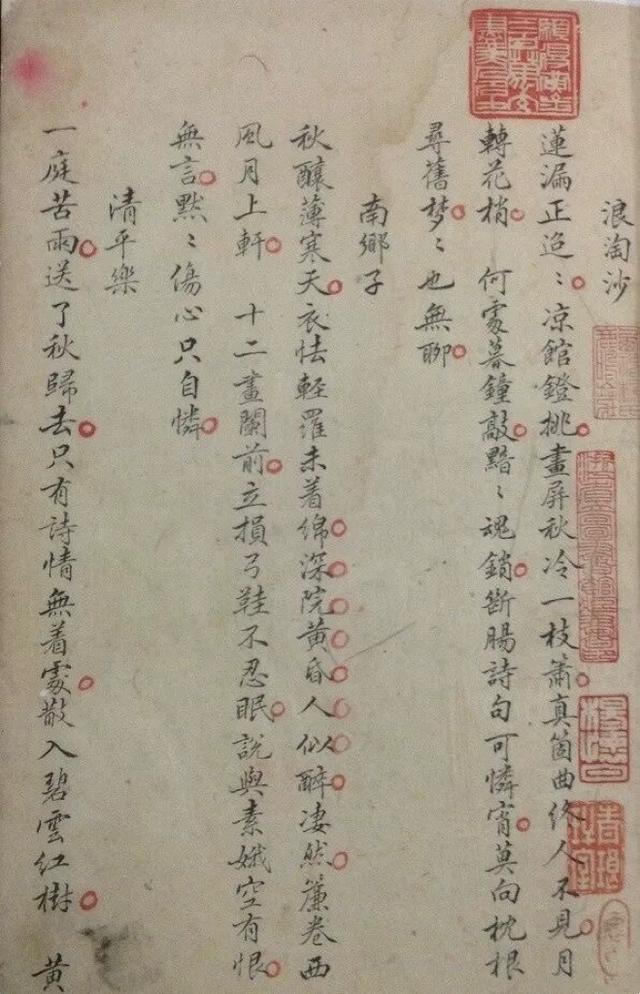 浪淘沙
蓮漏正迢〻凉館鐙挑畫屏秋冷一枝簫真箇曲終人不見月
轉花梢　何處暮鐘敲黯〻魂銷斷腸詩句可憐宵莫向枕根
尋舊梦〻也無聊
南鄉子
秋釀薄寒天衣怯輕羅未着綿深院黃昏人似醉淒然簾卷西
風月上軒　十二畫闌前立損弓鞋不忍眠說與素娥空有恨
無言默〻傷心只自憐
清平樂
一庭苦雨送了秋歸去只有詩情無着處散入碧雲紅樹　黃